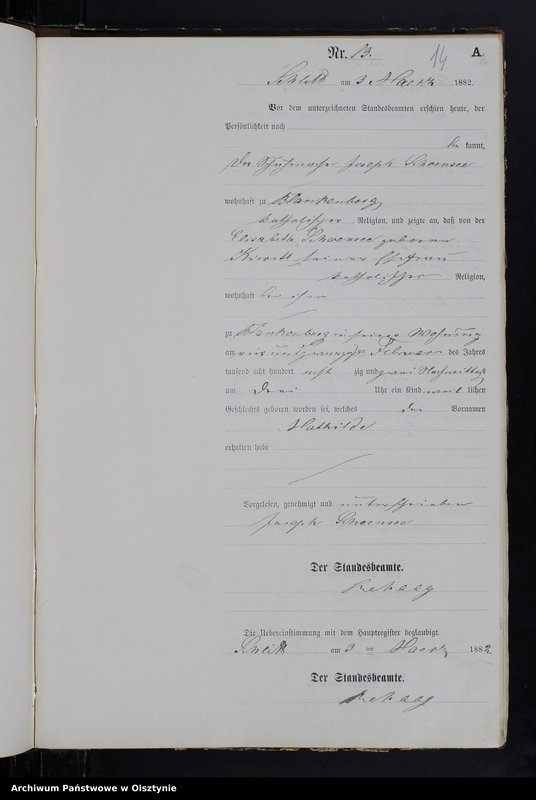 Nr. 13. 14 A.
Schlitt am 3 Maerz 1882.
Vor dem unterzeichneten Standesbeamten erschien heute, der
Persönlichkeit nach
be kannt,
der Joseph Schoensee
wohnhaft zu Blankenberg
katholischer Religion, und zeigte an, daß von der
Elisabeth Schoensee geborene
seiner Ehefrau
katholischer Religion,
wohnhaft bei ihm
zu Blankenberg in seiner Wohnung
am undzwanzigsten Februar des Jahres
tausend acht hundert acht zig und zwei Nachmittags
um drei Uhr ein Kind weib lichen
Geschlechts geboren worden sei, welches den Vornamen
Mathilde
erhalten habe
Vorgelesen, genehmigt und unterschrieben
Joseph Schoensee
Der Standesbeamte.
Die Uebereinstimmung mit dem Hauptregister beglaubigt.
Schlitt am 3 ten Maerz 1882
Der Standesbeamte.
Archiwum Państwowe w Olsztynie